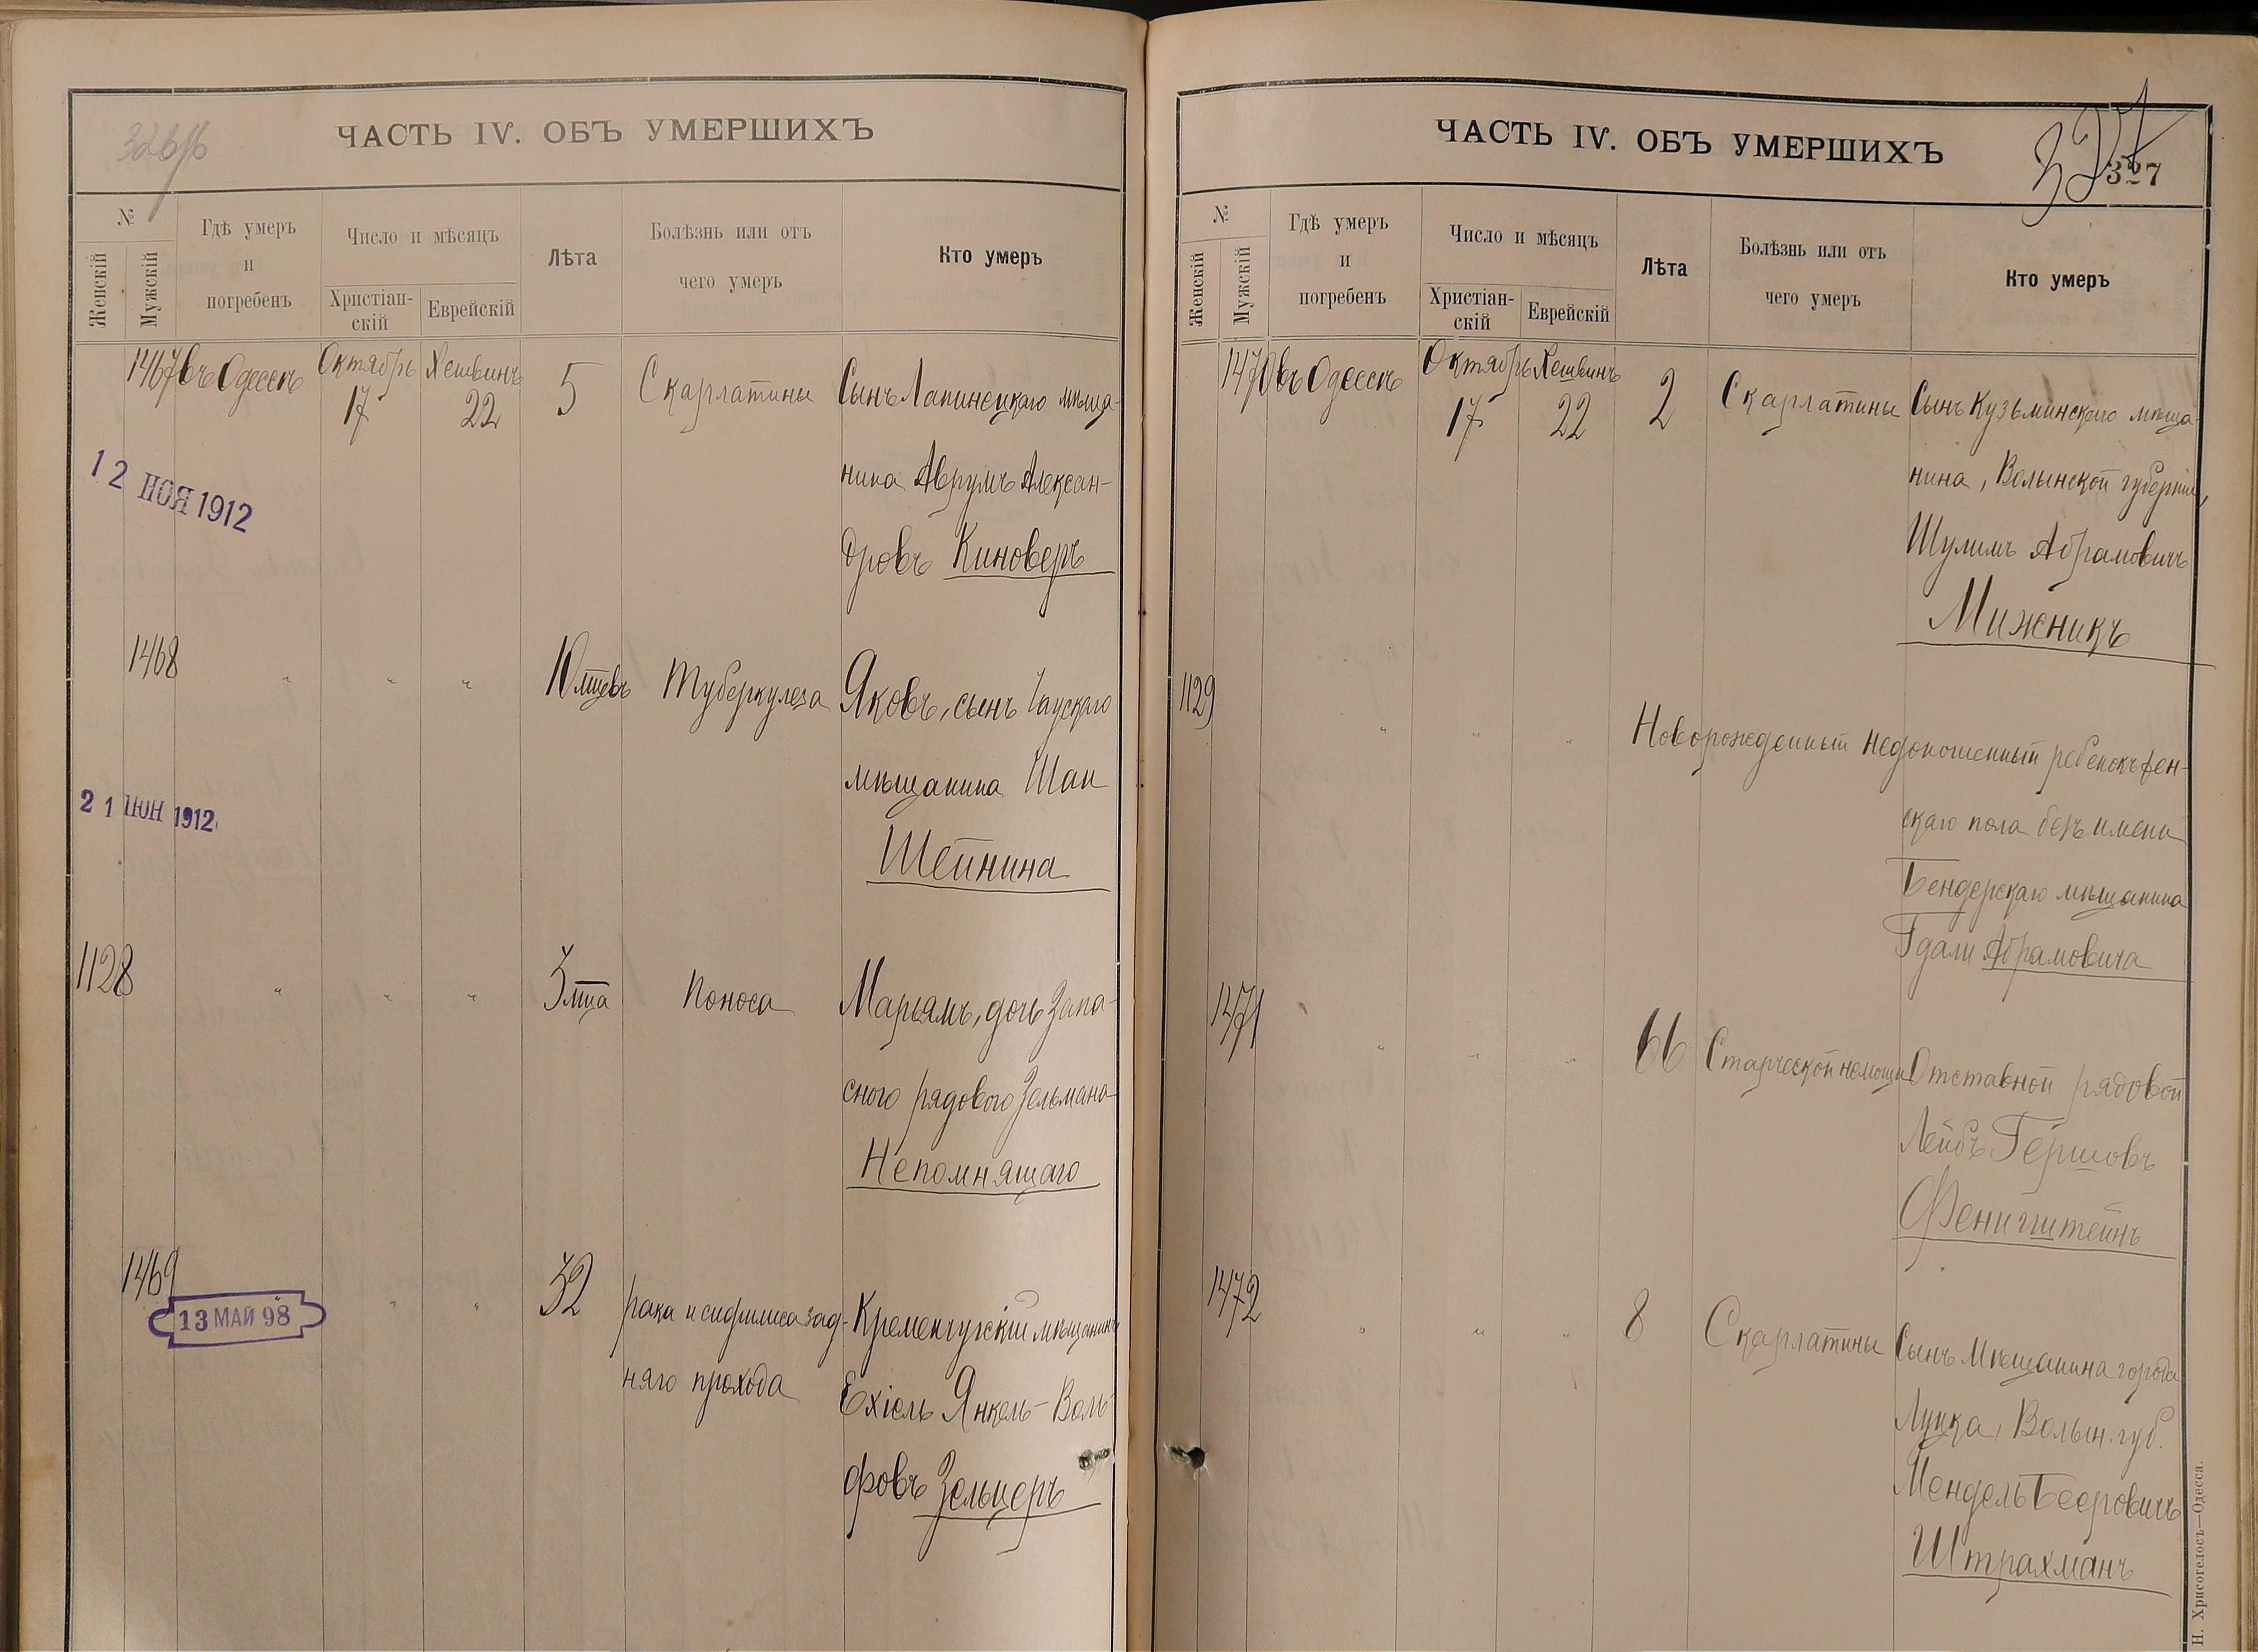 326об
ЧАСТЬ IV. ОБЪ УМЕРШИХЪ
№
Женскій
Мужскій
Гдѣ умеръ
и
погребенъ
Число и мѣсяцъ
Христіан-
скій
Еврейскій
Лѣта
Болѣзнь или отъ
чего умеръ
Кто умеръ
1467 въ Одессѣ Октябрь 17 Хешвинъ 22 5 Скарлатины Сынъ Лапинецкаго мѣща-
нина Аврумъ Алексан-
дровъ Киноверъ
12 НОЯ 1912
1468 " " " 10 мцевъ Туберкулеза Яковъ, сынъ Чаускаго
мѣщанина Шаи
Шейнина
21 ІЮН 1912
1128 " " " 3 мца Поноса Марьямъ, дочь запа-
сного рядового Зельмана
Непомнящаго
1469 " " " 32 рака и сифилиса зад- Кременчугскій мѣщанинъ
няго прохода Ехіель Янкель-Воль-
фовъ Зельцеръ
13 МАЙ 98
ЧАСТЬ IV. ОБЪ УМЕРШИХЪ
327
327
№
Женскій
Мужскій
Гдѣ умеръ
и
погребенъ
Число и мѣсяцъ
Христіан-
скій
Еврейскій
Лѣта
Болѣзнь или отъ
чего умеръ
Кто умеръ
1470 въ Одессѣ Октябрь 17 Хешвинъ 22 2 Скарлатины Сынъ Кузьминскаго мѣща-
нина, Волынской губерніи,
Шулимъ Абрамовичъ
Мижникъ
1129 " " " Новорожденный недоношенный ребенокъ жен-
скаго пола безъ имени
Бендерскаго мѣщанина
Гдали Абрамовича
1471 " " " 66 Старческой немощи Отставной рядовой
Лейбъ Гершовъ
Фенигштейнъ
1472 " " " 8 Скарлатины Сынъ мѣщанина города
Луцка, Волын. губ.
Мендель Бееровичъ
Штрахманъ
Н. Хрисогелосъ—Одесса.